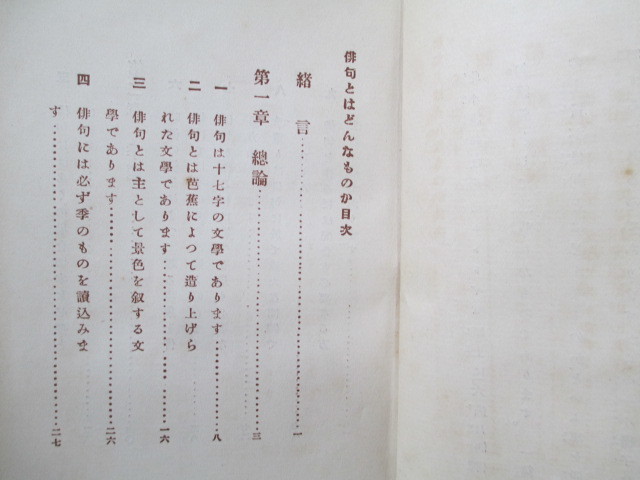 俳句とはどんなものか目次
緖言……一
第一章　總論……三
一　俳句は十七字の文學であります……八
二　俳句とは芭蕉によつて造り上げら
れた文學であります……一六
三　俳句とは主として景色を叙する文
學であります……二六
四　俳句には必ず季のものを讀込みま
す……二七